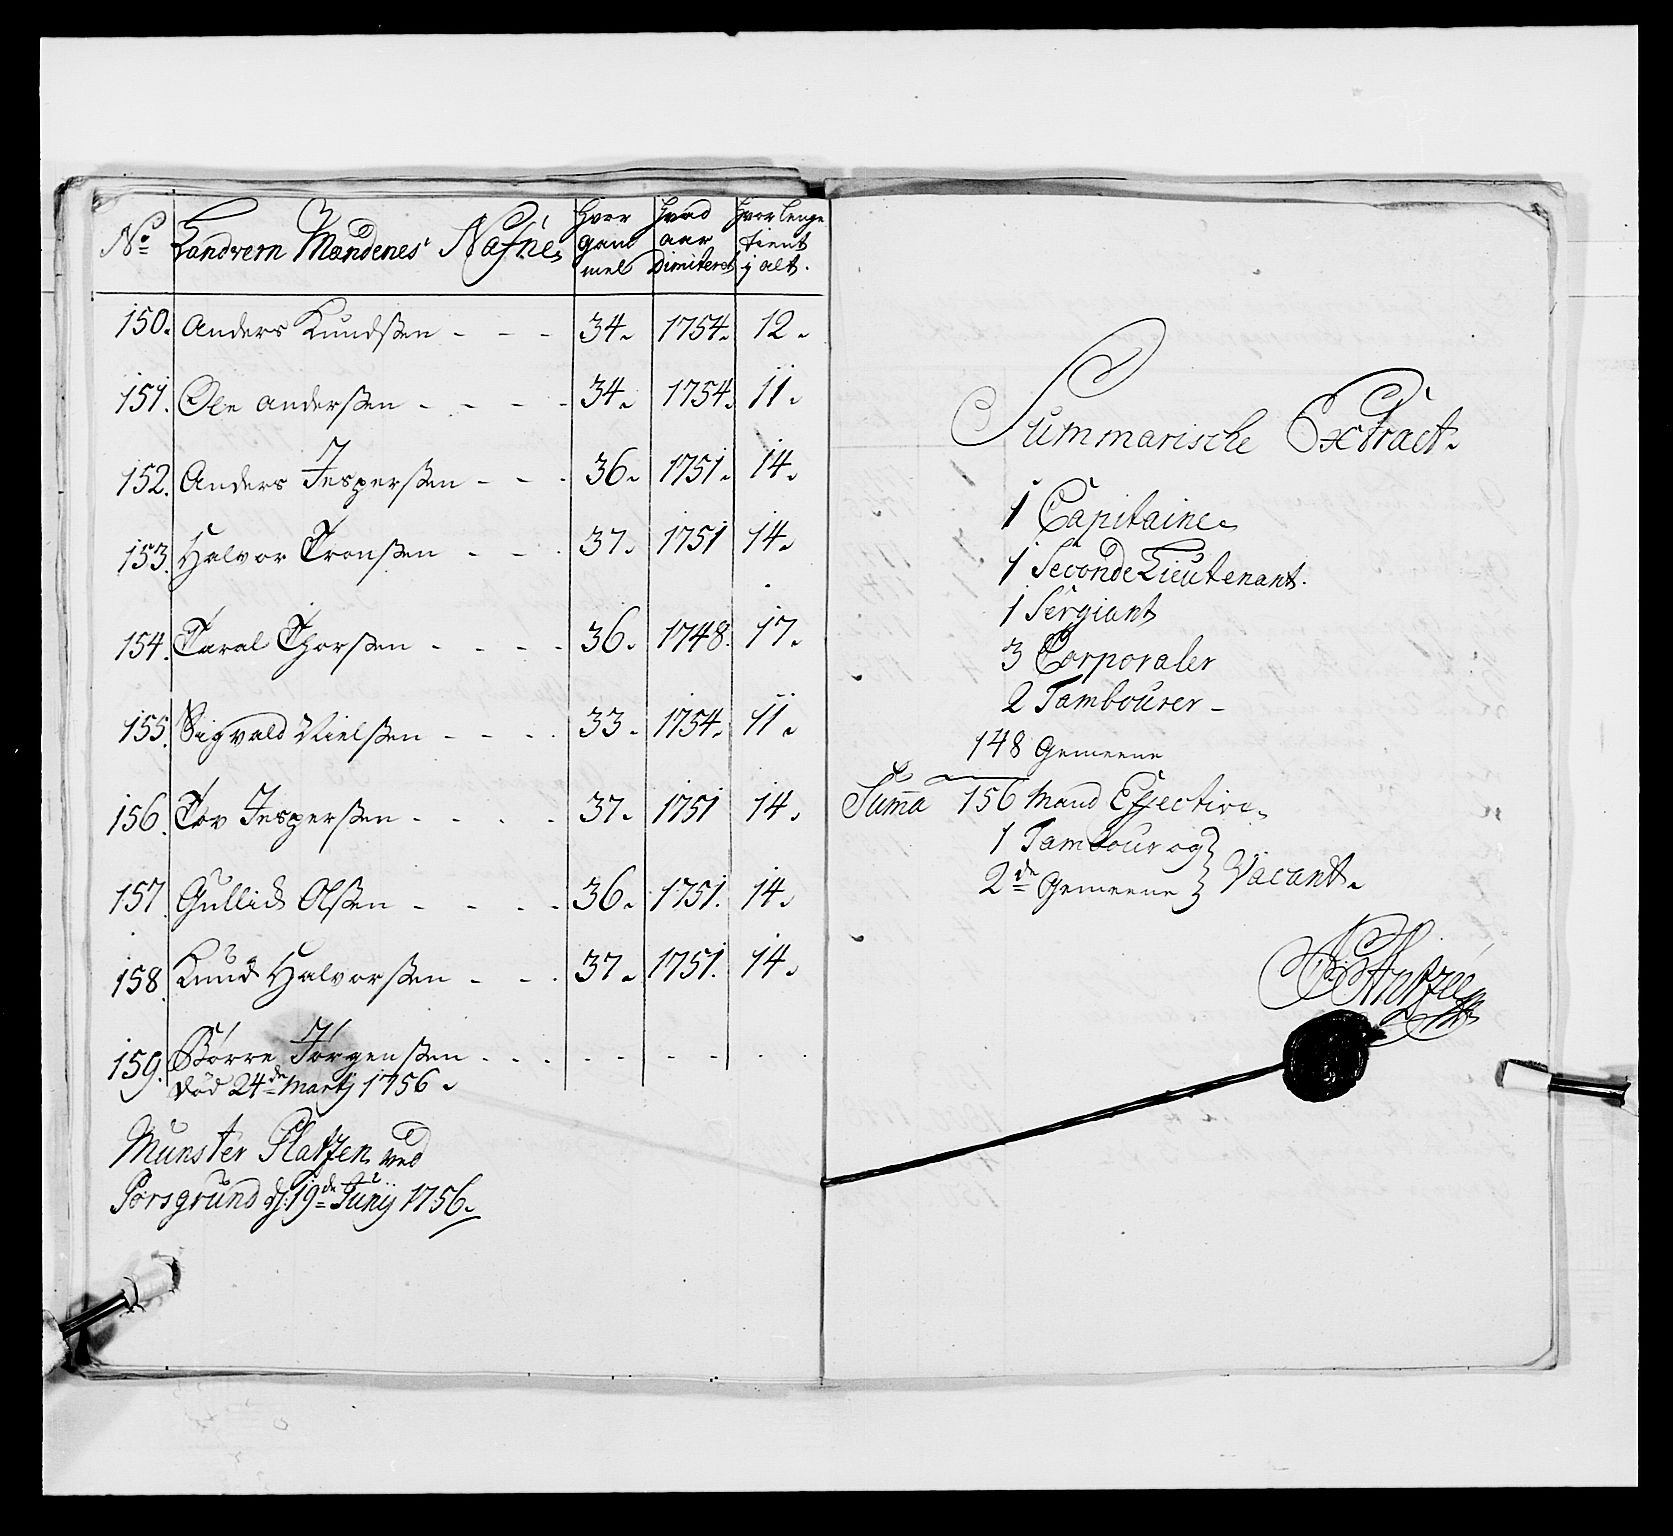 No Landvern Mændenes Nafne Hvor gam mel Hvad aar Dimiteret Hvor lenge tient i alt.
150. Anders Knudsßen - - - 34. 1754. 12.
151. Ole Anderßen - - - - 34. 1754. 11.
152. Anders Jesperßen - - - 36. 1751. 14.
153. Halvor Tronßen - - - 37. 1751 14.
154. Taral Thorßen - - - - 36. 1748. 17.
155. Sigvald Nielßen - - - - 33. 1754. 11.
156. Tov Jesperßen - - - - 37. 1751 14.
157. Gullid Olßen - - - - 36. 1751. 14.
158. Knud Halvorßen - - - 37. 1751. 14.
159. Børre Jørgenßen - - - - - - - - -
død 24de Martij 1756.
Munster Platzen ved
Porsgrund d: 19de Junij 1756.
Summarische Extract.
1 Capitaine
1 Seconde Lieutenant.
1 Sergiant
3 Corporaler
2 Tambourer -
148 Gemeene
Suma 156 Mand Effective
1 Tambour og
2de Gemeene } Vacant.